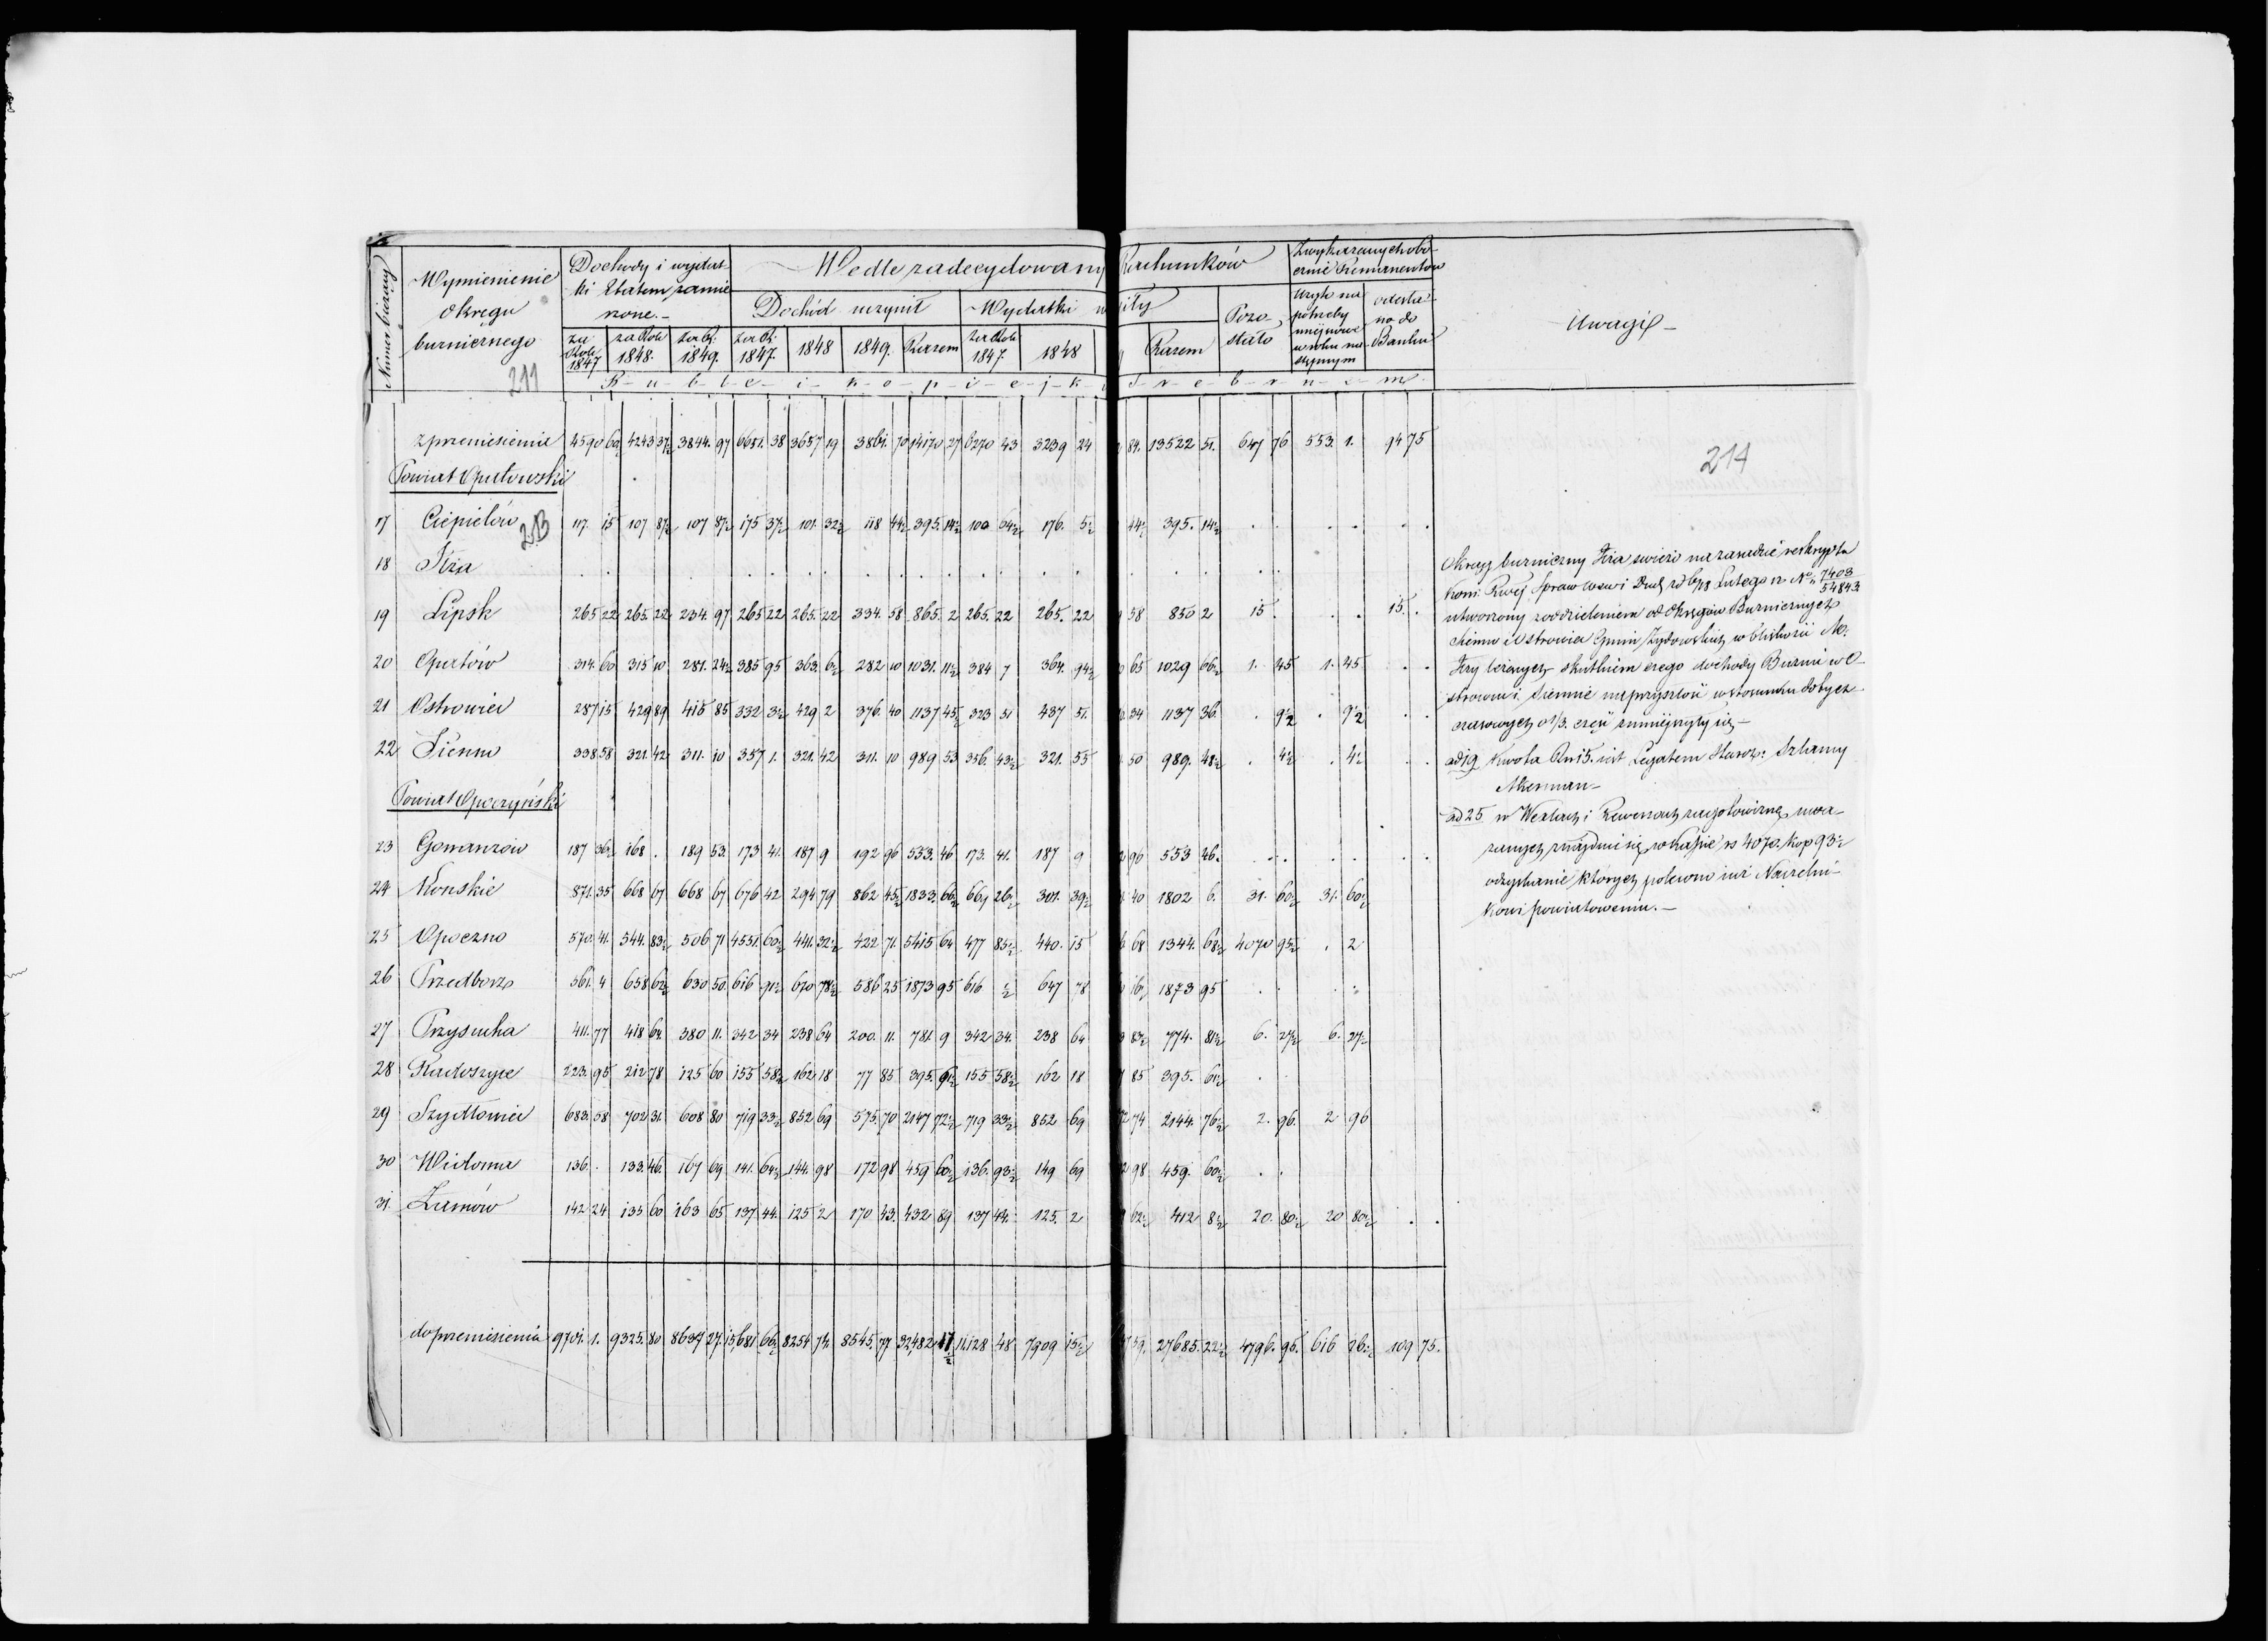 Numer bieżący
Wymienienie
okręgu
bużniczego
211
Dochody i wydat-
ki Etatem zamie
rzone.-
za Rok 1847
za Rok 1848.
za R. 1849.
Wedle zadecydowany Rachunków
Dochód uczynił
za R. 1847.
1848
1849.
Razem
Wydatki
za Rok 1847.
1848
Razem
Pozo-
stało
Z wykazanych obo-
Remanentów
użyto na
potrzeby
w roku na-
stępnym
odesła-
no do
Banku
Uwagi
R-u-b-l-e- i- k-o-p-i-e-j-k- S-r-e-b-r-n-e-m
z przeniesienia 4590 69 4243 37½ 3844. 97 6651. 38 3657 19 3861. 70 14170 27 6270 43 3239 24 84. 13522 51. 647 76 553. 1. 94 75
214
Powiat Opatowski
17 Ciepielów 117. 15 107 87½ 107 87½ 175 37½ 101. 32½ 118 44½ 395. 14½ 100 64½ 176. 5½ 44½ 395. 14½ . . . . . .
213
18 Iłża
19 Lipsk 265 22 265. 22 234. 97 265 22 265. 22 334. 58 865. 2 265. 22 265. 22 58 850 2 15 . . . 15. .
20 Opatów 314. 60 315 10 281. 24½ 385 95 363. 6½ 282 10 1031. 11½ 384 7 364. 94½ 65 1029 66½ 1. 45 1. 45 . .
21 Ostrowiec 287 15 429 89 415 85 332 3½ 429 2 376. 40 1137 45½ 323 51 437 51. 34 1137 36. . 9½ . 9½ . .
22 Sienno 338 58 321. 42 311. 10 357 1. 321. 42 311. 10 989 53 356. 43½ 321. 55 50 989. 48½ . 4½ . 4½ . .
Powiat Opoczyński
23 187 36½ 168 . 189 53. 173 41. 187 9 192 96 553. 46 173. 41. 187 9 96 553 46. . . . . . .
24 Konskie 871. 35 668 67 668 67 676 42 294 79 862 45½ 1833. 66½ 669 26½ 301. 39½ 40 1802 6. 31. 60½ 31. 60½
25 Opoczno 570. 41. 544. 83½ 506 71 4551. 60½ 441. 32½ 422 71. 5415 64 477 85½ 440. 15 68 1344. 68½ 4070 95½ . 2
26 Przedborz 561. 4 658 62½ 630 50. 616 91½ 670 78½ 586 25 1873 95 616 ½ 647 78 16½ 1873 95 . . . .
27 Przysucha 411. 77 418 64. 380 11. 342 34 238 64 200. 11. 781. 9 342 34. 238 64 87½ 774. 81½ 6. 27½ 6. 27½
28 Radoszyce 223. 95 212 78 125 60 155 58½ 162 18 77 85 395. 61½ 155 58½ 162 18 85 395. 61½ .
29 Szydłowiec 683. 58 702 31. 608 80 719 33½ 852 69 575. 70 2147 72½ 719 33½ 852 69 74 2144. 76½ 2. 96. 2 96
30 Widoma 136. . 133. 46. 167 69 141. 64½ 144. 98 172 98 459 60½ 136. 93½ 149 69 98 459. 60½ . .
31. Żarnów 142 24 135 60 163 65 137 44. 125 2 170 43. 432 89 137 44. 125. 2 62½ 412 8½ 20. 80½ 20 80½ . .
do przeniesienia 9701. 1. 9325. 80 8637 27. 15,681 66½ 8254 74. 8545. 77 32,482 17½ 11,128 48 7909 15½ 59. 27685. 22½ 4796. 95. 616 26½ 109 75.
Okręg bużniczny Iłża świeżo na zasadzie reskryptu
Kom. Rząd. Spraw Wewn i Duch z d 6/18 Lutego r. No 7408/54843
utworzony z oddzieleniem od Okręgów Bużnicznych
Sienno i Ostrowca Gmin Żydowskich w bliskości
Iłży leżących skutkiem czego dochody Bużni w O-
strowcu i Siennie na przyszłość w stosunku dotych-
czasowych o 1/3. część zmniejszyły się.-
ad 19 Kwota Rs 15. jest Legatem Starozr: Szlamy
Akerman-
ad 25 w Wexlach i Rewersach za gotowiznę uwa-
żanych znajduje się w kassie rs 4070 kop 93½
odzyskanie których polecono już Naczelni-
kowi powiatowemu.-